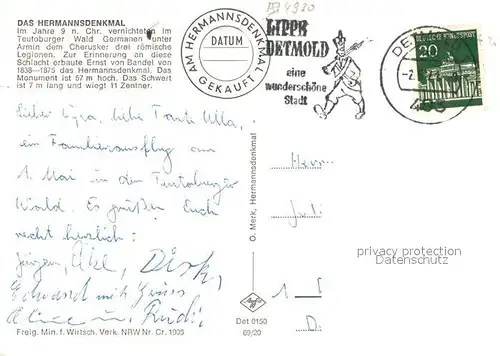 DAS HERMANNSDENKMAL
Im Jahre 9 n. Chr. vernichteten im
Teutoburger Wald Germanen unter
Armin dem Cherusker drei römische
Legionen. Zur Erinnerung an diese
Schlacht erbaute Ernst von Bandel von
1838—1875 das Hermannsdenkmal. Das
Monument ist 57 m hoch. Das Schwert
ist 7 m lang und wiegt 11 Zentner.
AM HERMANNSDENKMAL
DATUM
GEKAUFT
4920
LIPPE
DETMOLD
eine
wunderschöne
Stadt
DEUTSCHE BUNDESPOST
20
Lieber Opa, liebe Tante Ulla,
ein Familienausflug am
1. Mai in den Teutoburger
Wald. Es grüßen Euch
recht herzlich:
Jürgen, Dirk,
Edward mit Gruss
u. Rudi
Freig. Min. f. Wirtsch. Verk. NRW Nr. Cr. 1903
O. Merk, Hermannsdenkmal
Agfa
Det 0150
69/20
Herrn
1
D
privacy protection
Datenschutz